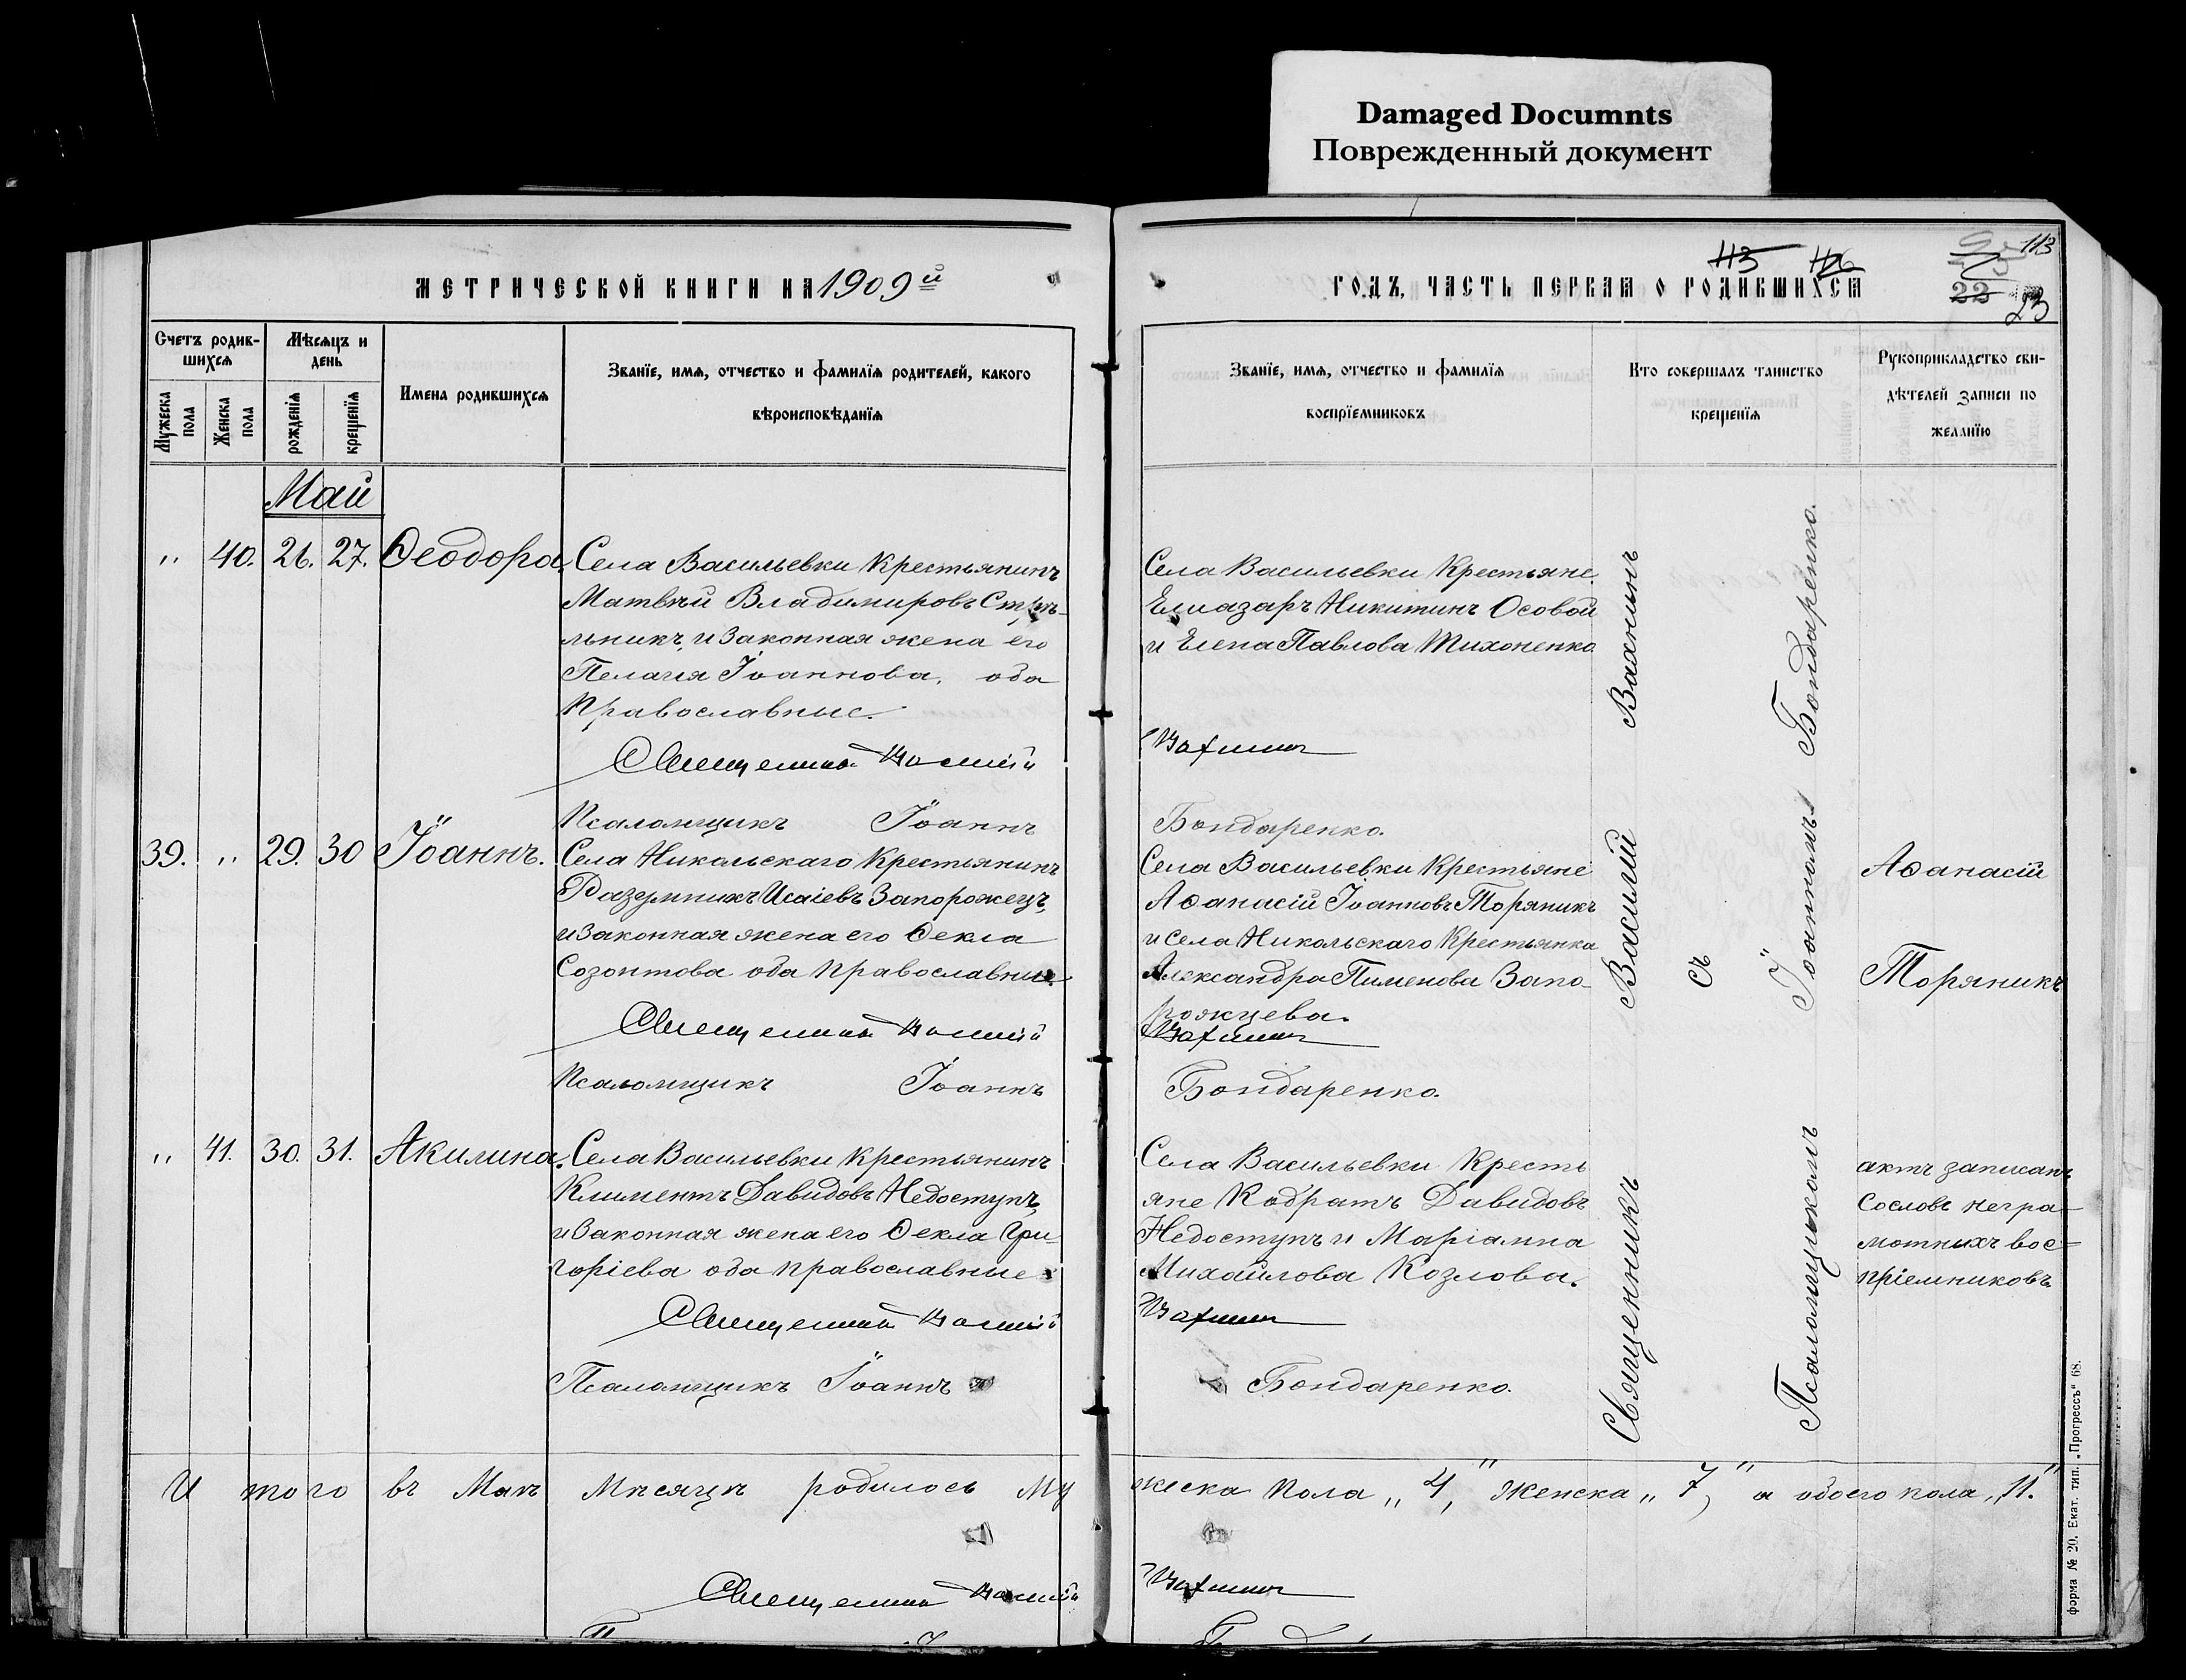 Damaged Documnts
Поврежденный документ
МЕТРИЧЕСКОЙ КНИГИ НА 1909й
Счетъ родив-
шихся
Мужеска
пола
Женска
пола
Мѣсяцъ и
день
рожденія
крещенія
Имена родившихся
Званіе, имя, отчество и фамилія родителей, какого
вѣроисповѣданія
Май
" 40. 26. 27. Ѳеодора.
Села Васильевки Крестьянинъ
Матвѣй Владимировъ Стрѣ-
льникъ, и Законная жена его
Пелагія Іоаннова, оба
Православные.
Священникъ Василій
Псаломщикъ Іоаннъ
39. " 29. 30 Іоаннъ.
Села Никольскаго Крестьянинъ
Разумникъ Исаіевъ Запорожецъ,
и Законная жена его Ѳекла
Созонтова оба Православные.
Священникъ Василій
Псаломщикъ Іоаннъ
" 41. 30. 31. Акилина.
Села Васильевки Крестьянинъ
Климентъ Давидовъ Недоступъ,
и Законная жена его Ѳекла Гри-
горіева оба Православные
Священникъ Василій
Псаломщикъ Іоаннъ
И того въ Маѣ Мѣсяцѣ родилось Му
Священникъ Василій
ГОДЪ, ЧАСТЬ ПЕРВАЯ О РОДИВШИХСЯ
113 116
113
22
23
Званіе, имя, отчество и фамилія
воспріемниковъ
Кто совершалъ таинство
крещенія
Рукоприкладство сви-
дѣтелей записи по
желанію
Села Васильевки Крестьяне
Елиазаръ Никитинъ Осовой
и Елена Павлова Тихоненко
Вахнинъ
Бондаренко.
Села Васильевки Крестьяне
Аѳанасій Іоанновъ Торяникъ
и Села Никольскаго Крестьянка
Александра Пименова Запо-
рожцева.
Вахнинъ
Бондаренко.
Села Васильевки Кресть
яне Кодратъ Давидовъ
Недоступъ и Маріамна
Михайлова Козлова.
Вахнинъ
Бондаренко.
Священникъ Василій Вахнинъ
съ
Псаломщикомъ Іоанномъ Бондаренко.
Аѳанасій
Торяникъ
актъ записанъ
Сословъ негра-
мотныхъ вос-
пріемниковъ
жеска Пола „4," Женска „7," а обоего пола „11."
Вахнинъ
форма № 20. Екат. тип. „Прогрессъ" 68.